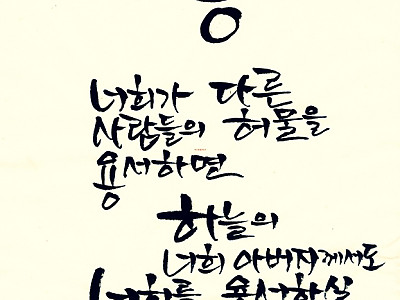 너희가 다른
사람들의 허물을
용서하면
하늘의
너희 아버지께서도
너희를 용서하실